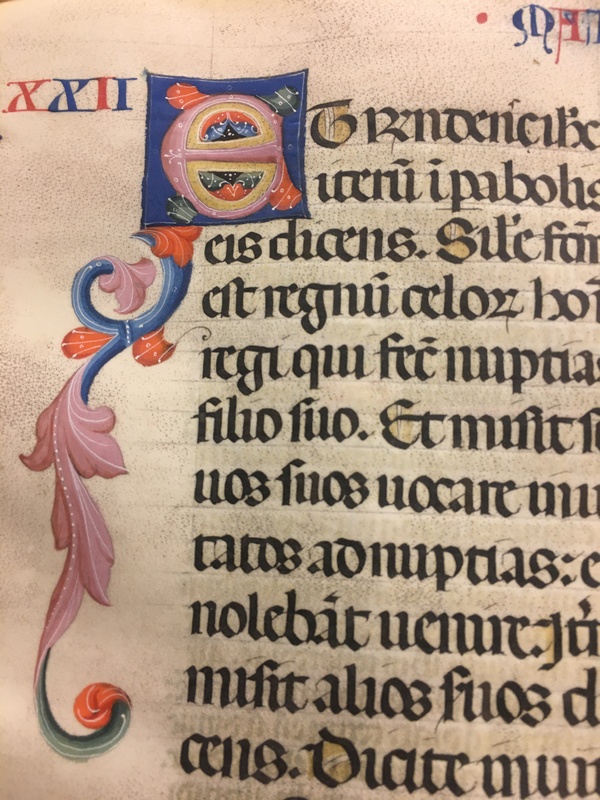 MAT
XXII
ET Rn̄dens ihc
iterū ī pabolis
eis dicens. Sil'e fcm
est regnū celoꝝ homi
regi qui fec̄ nuptias
filio suo. Et misit s
uos suos uocare inui
tatos ad nuptias: e
nolebāt uenire. Itū
misit alios suos d
cens. Dicite inui